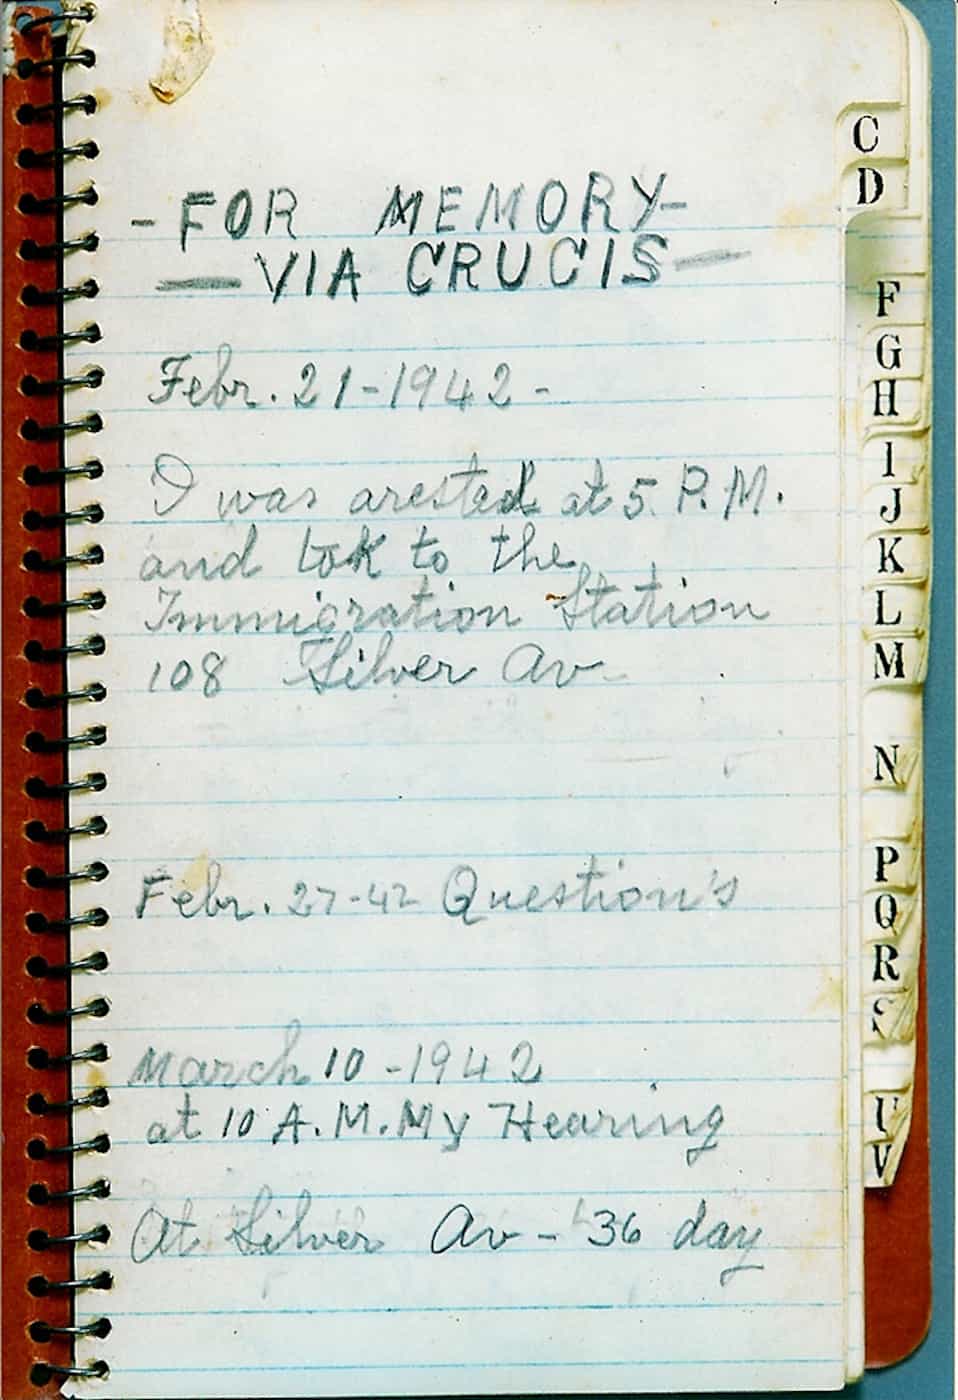 - FOR MEMORY -
— VIA CRUCIS —
Febr. 21 - 1942 -
I was arested at 5 P.M.
and tok to the
Immigration Station
108 Silver Av -
Febr. 27-42 Question's
March 10 - 1942
at 10 A.M. My Hearing
At Silver Av - 36 day
C
D
F
G
H
I
J
K
L
M
N
P
Q
R
S
U
V